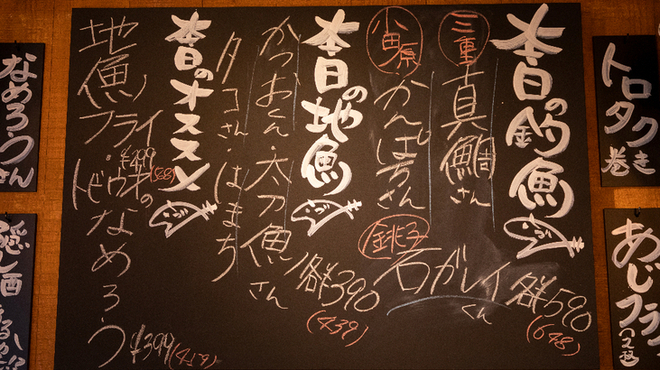 トロタク巻き
あじフライ
本日の釣魚
三重
真鯛さん
小田原
かんぱちさん
銚子
石ガレイくん
各¥590
(648)
本日の地魚
かつおくん・太刀魚さん
タコさん・はまち
各¥390
(439)
本日のオススメ
地魚フライ
¥499
トビウオのなめろう
¥399
なめろうさん
隠し酒